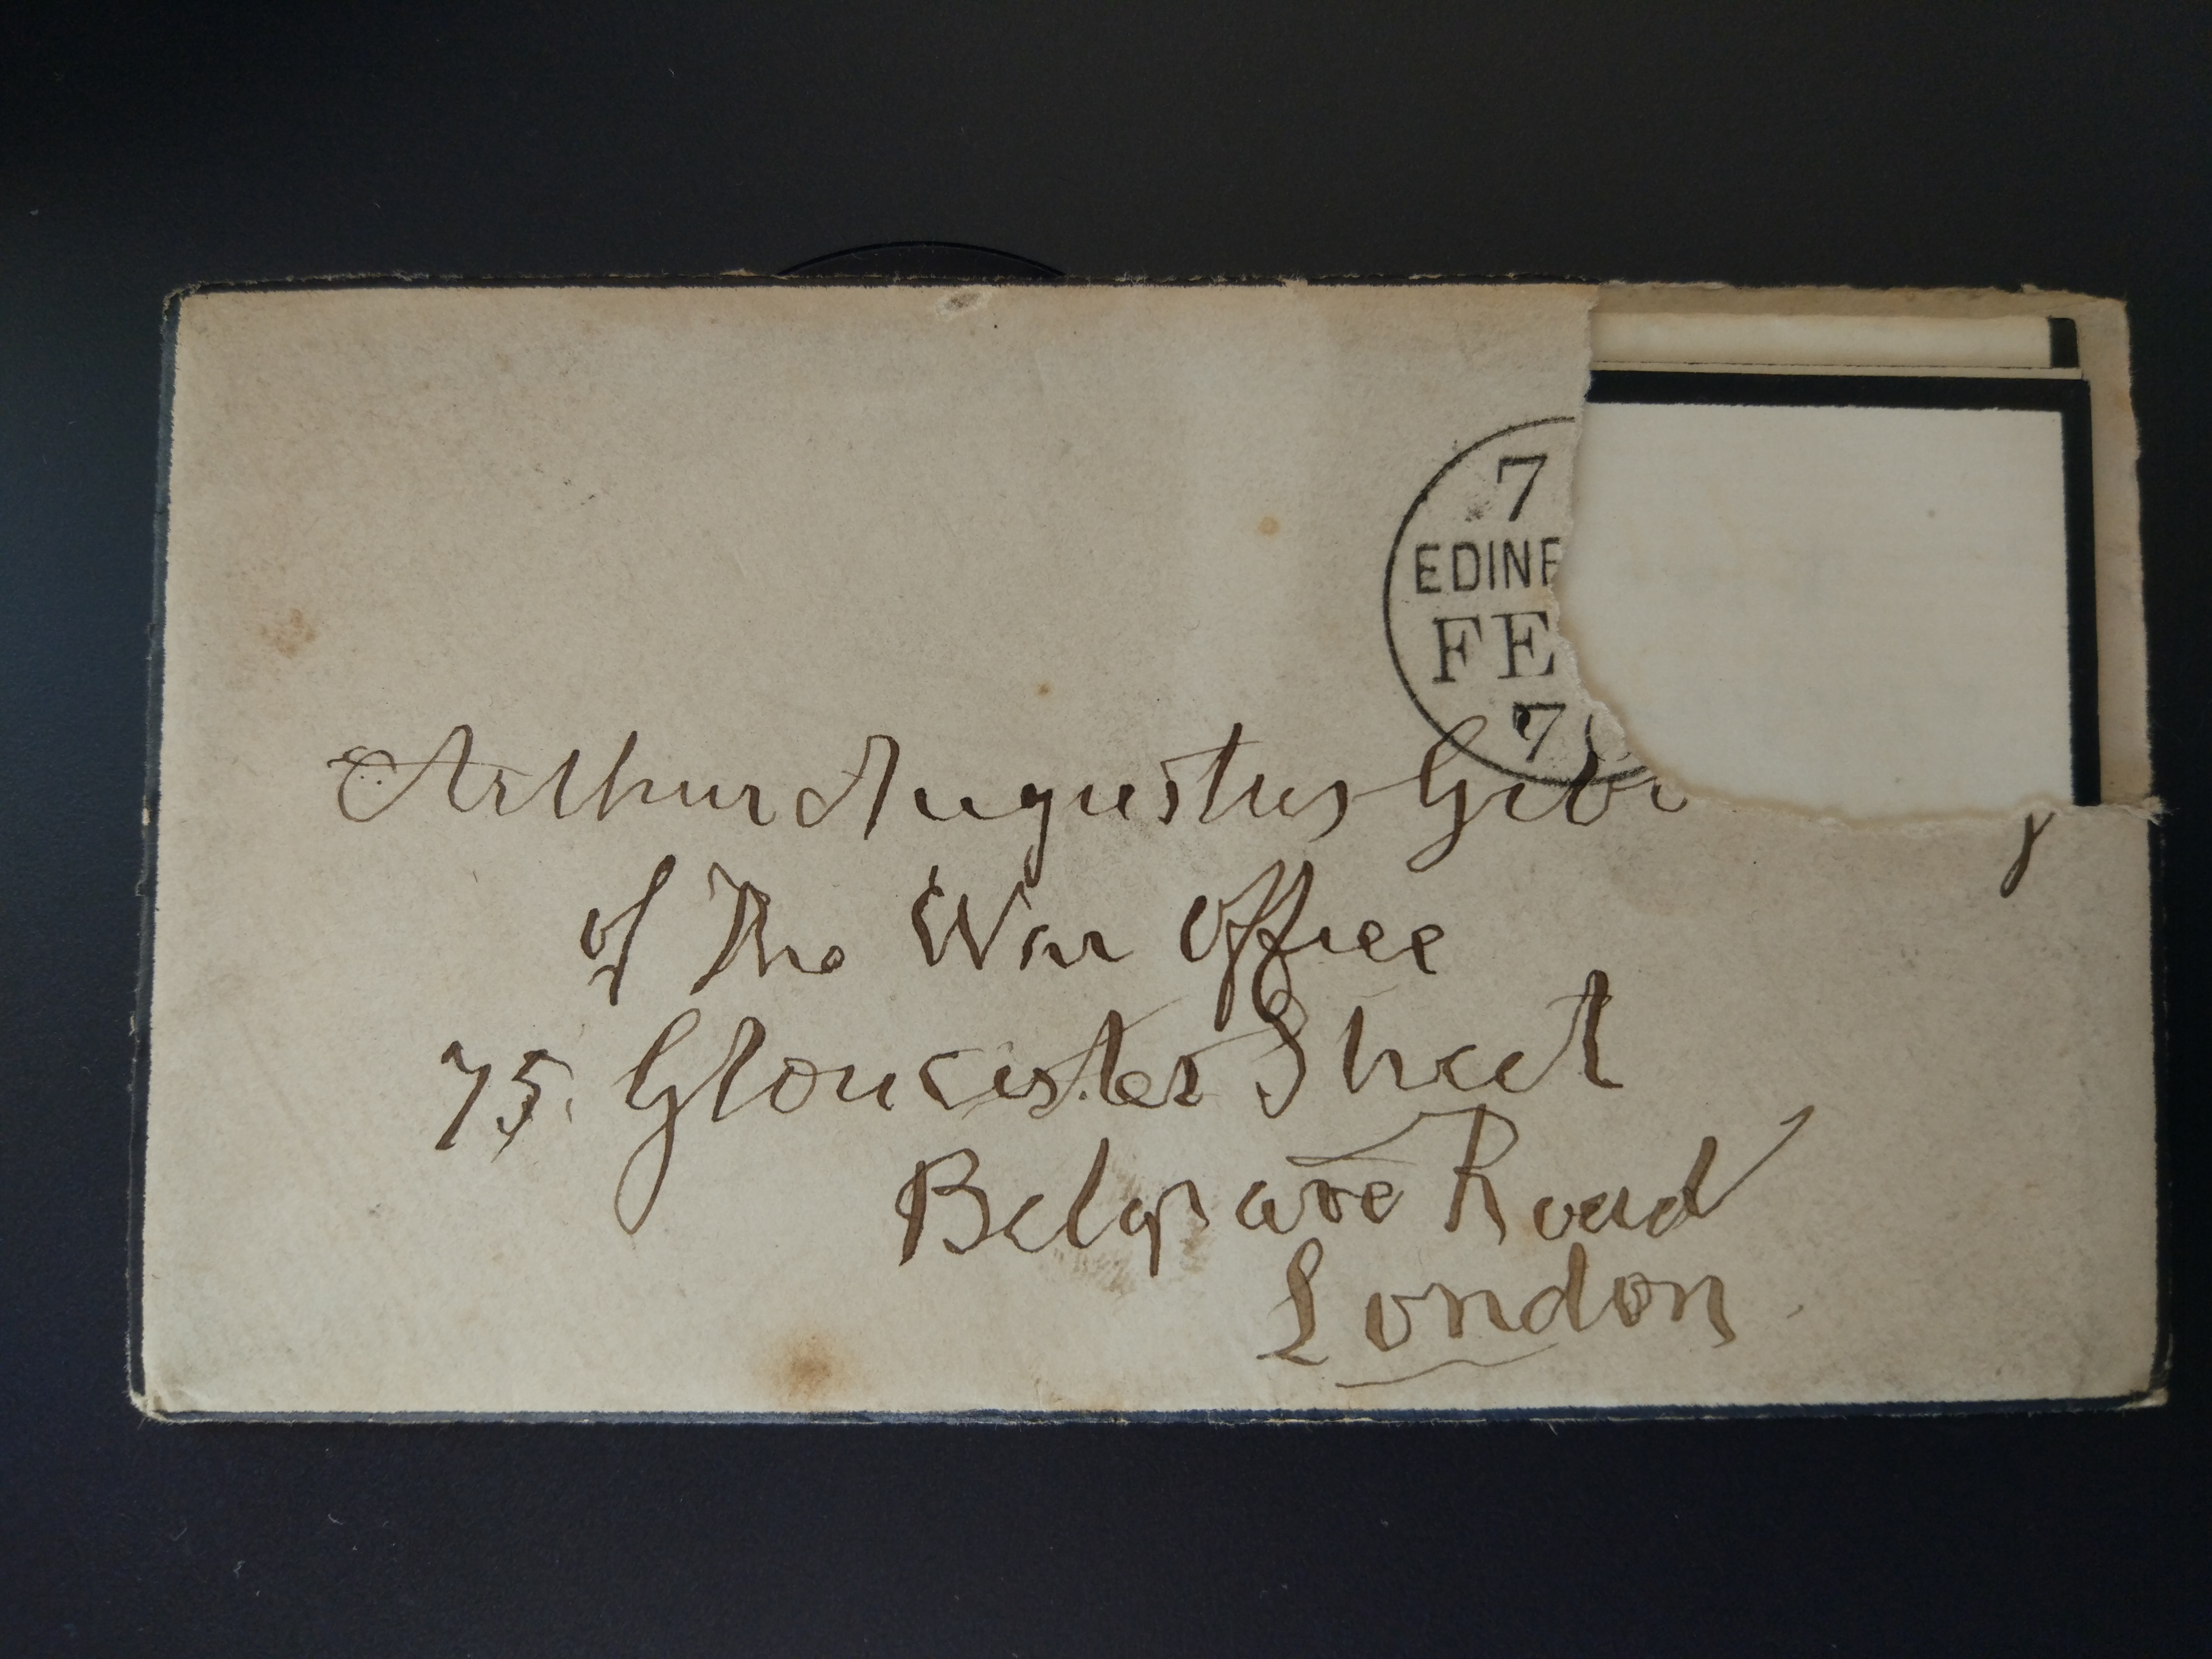 7
EDINB
FE
7
Arthur Augustus
of The War Office
75. Gloucester Street
Belgrave Road
London.